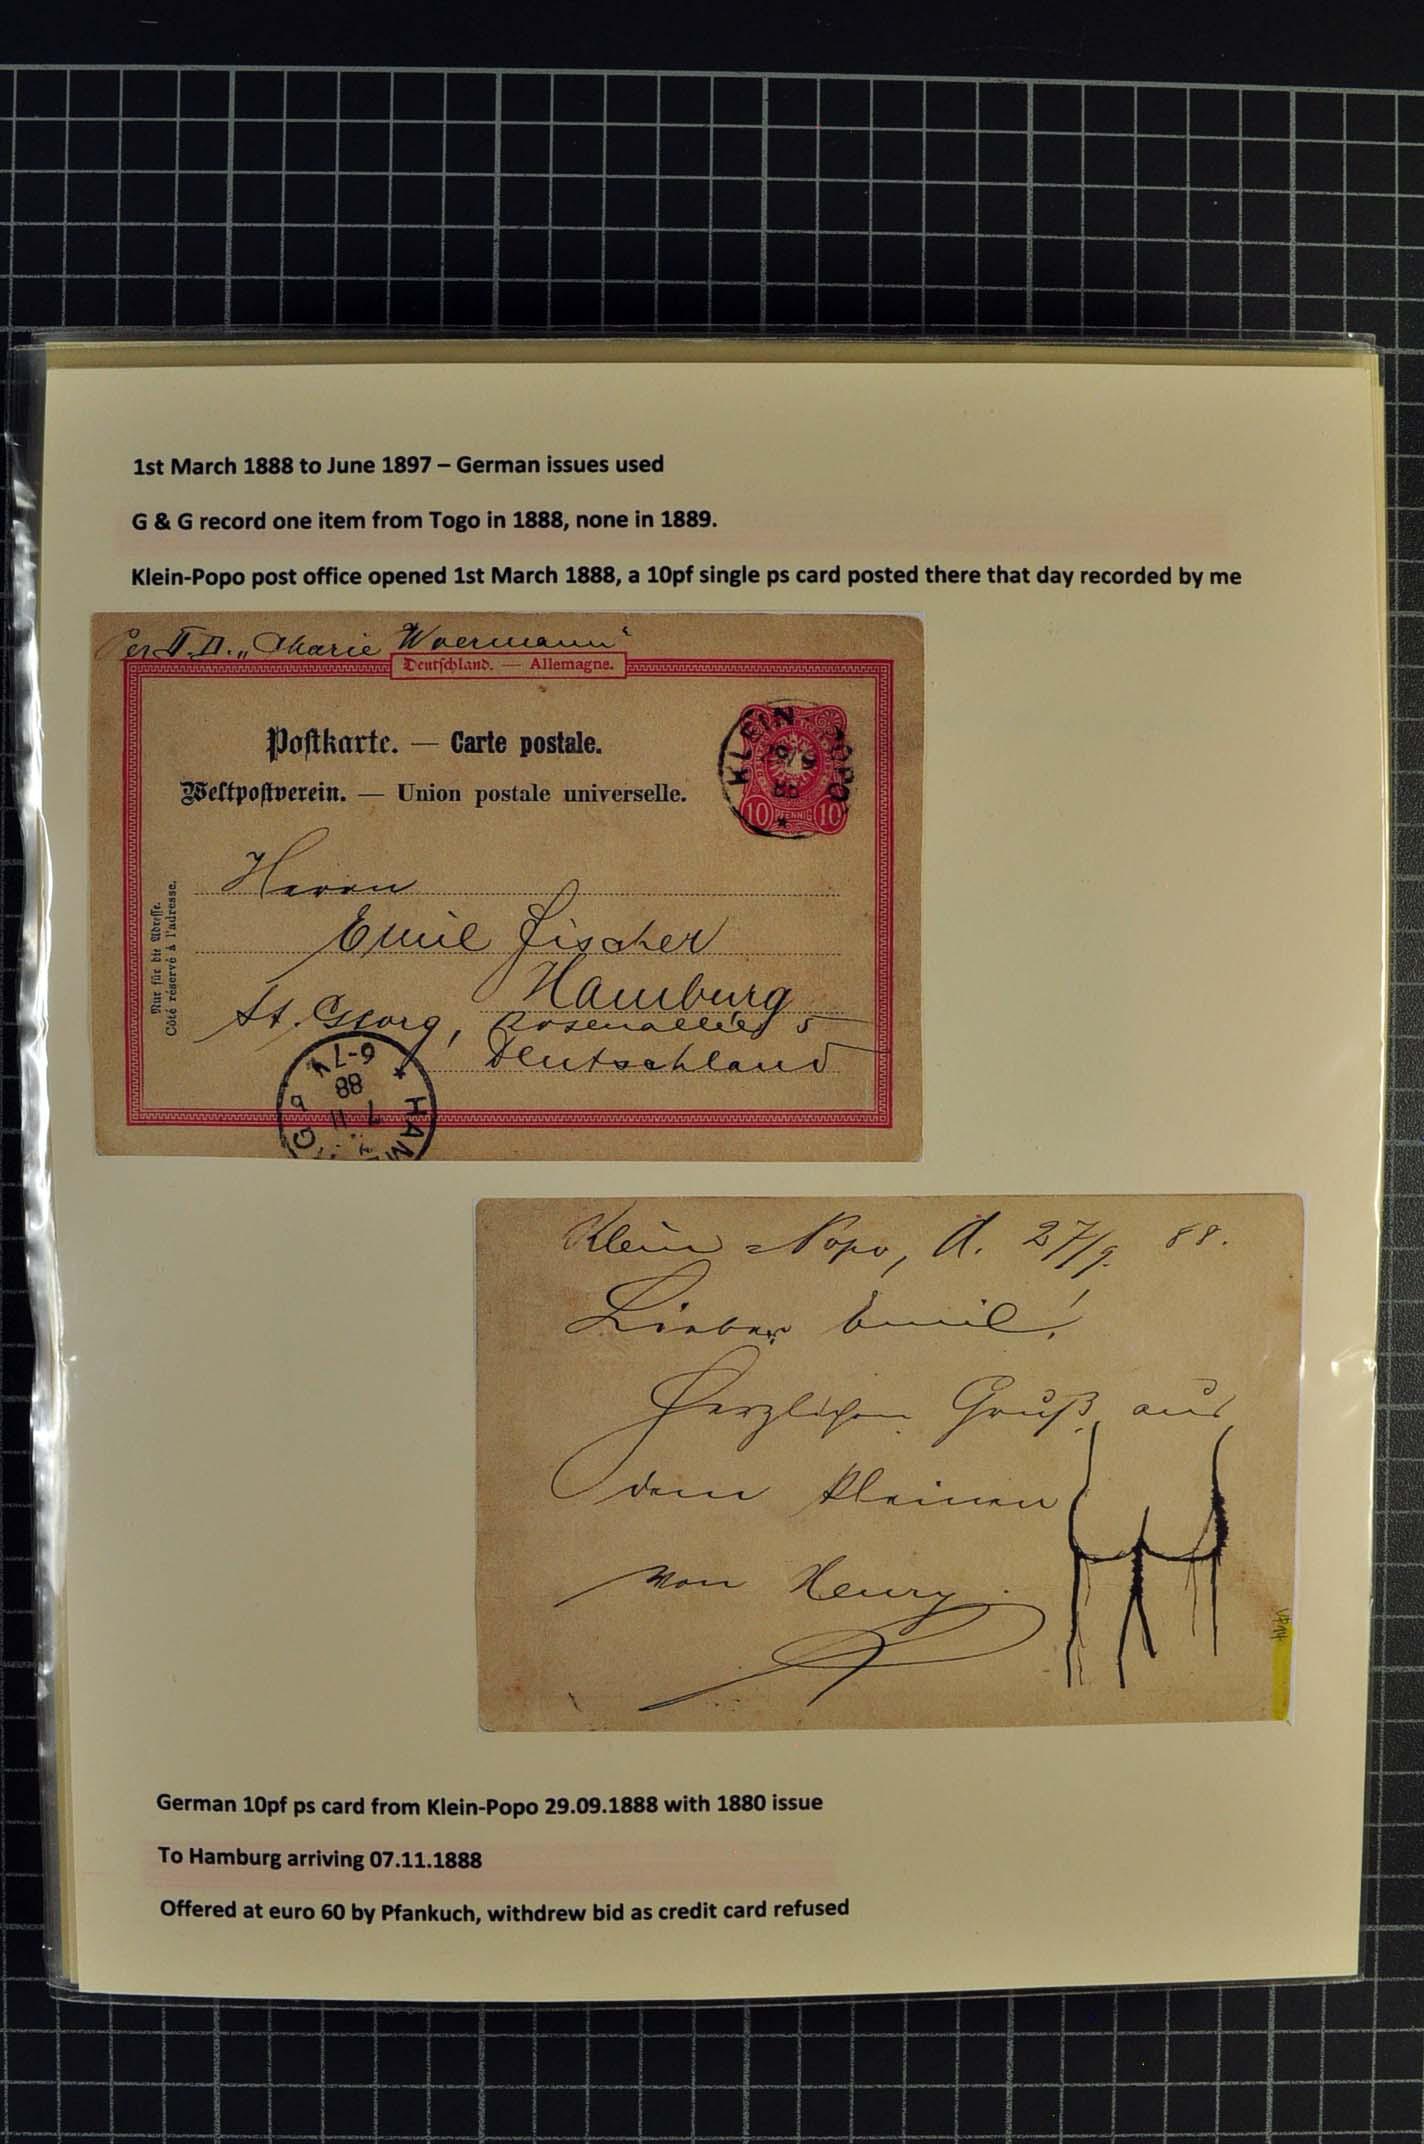 1st March 1888 to June 1897 – German issues used
G & G record one item from Togo in 1888, none in 1889.
Klein-Popo post office opened 1st March 1888, a 10pf single ps card posted there that day recorded by me
Per P.D. „Marie Woermann“
Deutschland. — Allemagne.
Postkarte. — Carte postale.
Weltpostverein. — Union postale universelle.
KLEIN-POPO
88
10 PFENNIG 10
Nur für die Adresse.
Côté réservé à l'adresse.
Herrn
Emil Fischer
Hamburg
St. Georg, Rosenallee 5
Deutschland
6-7V
88
7 11
Klein-Popo, d. 27/9. 88.
Lieber Emil!
Herzlichen Gruß aus
dem kleinen
von Henry.
German 10pf ps card from Klein-Popo 29.09.1888 with 1880 issue
To Hamburg arriving 07.11.1888
Offered at euro 60 by Pfankuch, withdrew bid as credit card refused